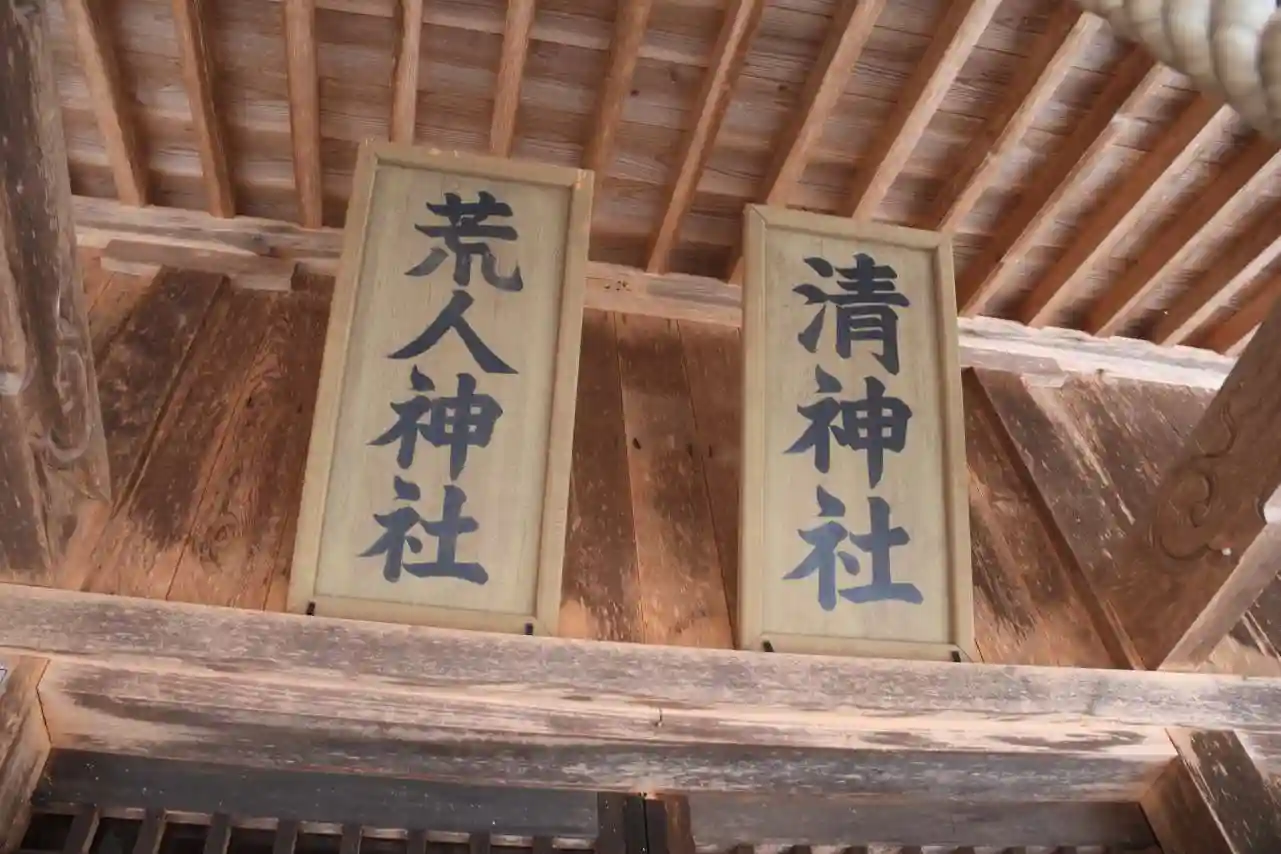 清神社
荒人神社